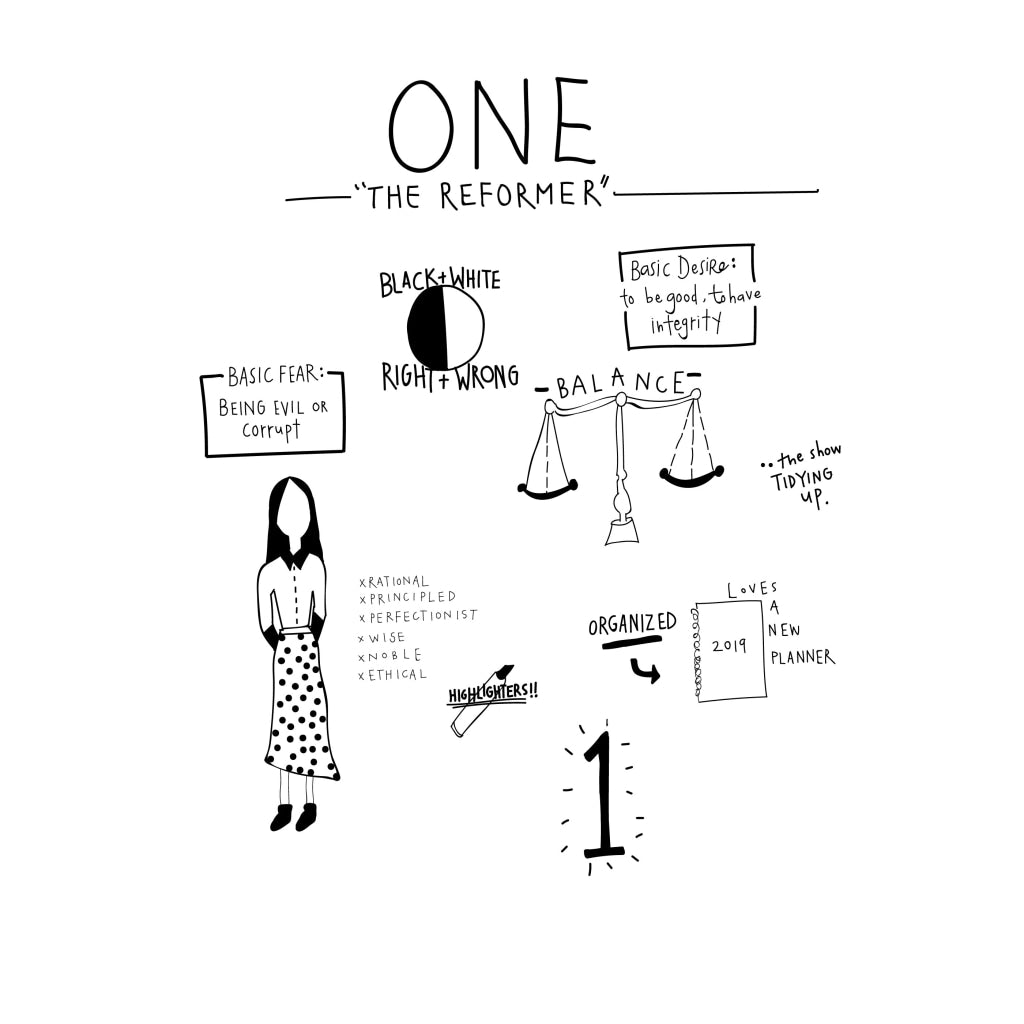 ONE
"THE REFORMER"
BLACK+WHITE
RIGHT + WRONG
Basic Desire:
to be good, to have
integrity
BASIC FEAR:
BEING EVIL OR
Corrupt
-BALANCE-
..the show
TIDYING
UP.
xRATIONAL
xPRINCIPLED
xPERFECTIONIST
xWISE
xNOBLE
xETHICAL
HIGHLIGHTERS!!
ORGANIZED
2019
LOVES
A
NEW
PLANNER
1